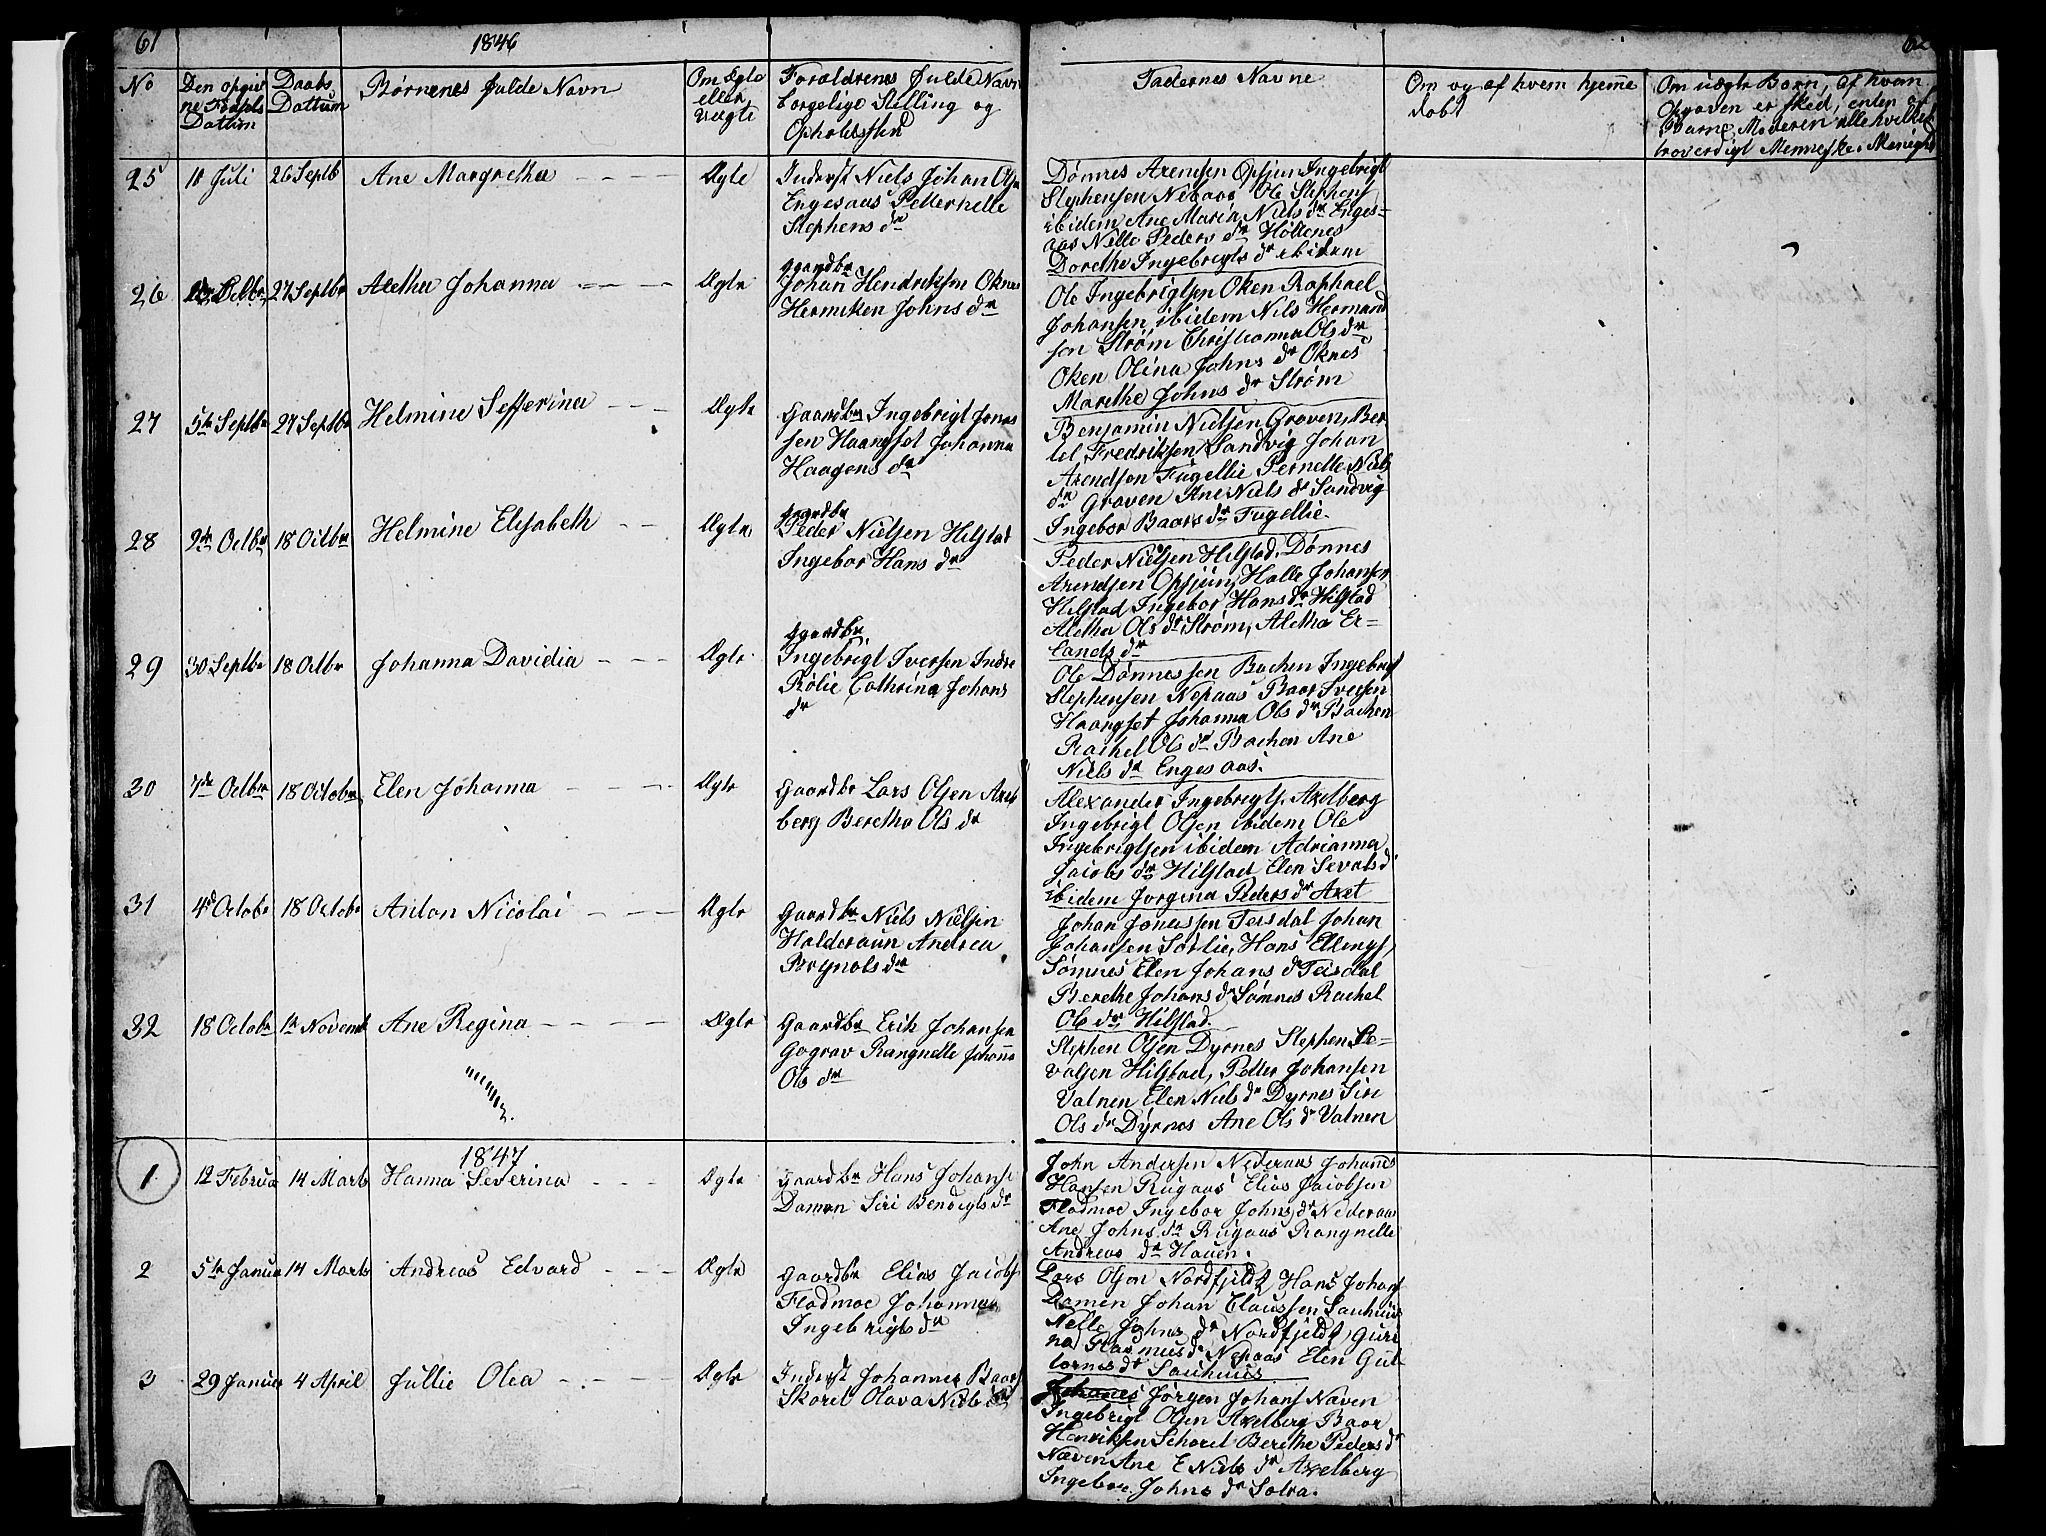 61
1846
62
No
Den opgivne Fødsels Dattum
Daabs Dattum
Børnenes fulde Navn
Om Ægte eller Uægte
Forældrenes fulde Navn borgelige Stilling og Opholdssted
Fadernes Navne
Om og af hvem hjemme døbt
Om uægte Børn, af hvem Opgaven er sked, enten af Barnemoderen elle hvilket troverdigt Menneske i Menighd
25
11 Juli
26 Septb
Ane Margretha
Ægte
Inderst Niels Johan Ols
Engesaas Petternelle
Stephens dr
Dønnes Arensen Opsjun Ingebrigt
Stephensen Nesaas Ole Stephens
ibidem Ane Maria Niels dr Enges=
aas Nelle Peders dr Hollenes
Dorethe Ingebrigts dr ibidem
26
27 Septbr
Aletha Johanna
Ægte
Gaardbr
Johan Hendriksen Oknes
Hermiken Johns dr
Ole Ingebrigtsen Oken Raphael
Johansen ibidem Nils Hermand
sen Strøm Christianna Ols dr
Oken Olina Johns dr Oknes
Marethe Johns dr Strøm
27
5te Septbr
27 Septbr
Helmine Sefferina
Ægte
Gaardbr Ingebrigt Jonas
sen Haangset Johanna
Haagens dr
Benjamin Nielsen Graven, Ber
tel Fredriksen Sandvig Johan
Arendsen Fugellie Pernelle Niels
dr Graven Ane Niels dr Sandvig
Ingebor Baars dr Fugellie
28
2de Octbr
18 Octbr
Helmine Elisabeth
Ægte
Gaardbr
Peder Nielsen Hilstad
Ingebor Hans dr
Peder Nielsen Hilstad, Dønnes
Arendsen Opsjun, Halle Johansen
Hilstad Ingebor Hans dr Hilstad
Aletha Ols dr Strøm, Aletha Er=
lands dr
29
30 Septbr
18 Octbr
Johanna Davidia
Ægte
Gaardbr
Ingebrigt Iversen Indre
Rølie Cathrina Johans
dr
Ole Dønnessen Bachen Ingebrigt
Stephensen Nepaas Baar Iversen
Haangset Johanna Ols dr Bachen
Rachel Ols dr Bachen Ane
Niels dr Engesaas.
30
7de Octbr
18 Octobr
Elen Johanna
Ægte
Gaardbr Lars Olsen Axel
berg Beretha Ols dr
Alexander Ingebregts. Axelberg
Ingebrigt Olsen ibidem Ole
Ingebrigtsen ibidem Adrianna
Jacobs dr Hilstad Elen Sevals d
ibidem Jorgina Peders dr Axel
31
4d Octobr
18 Octobr
Anton Nicolai
Ægte
Gaardbr Niels Nielsen
Halderaun Andrea
Brynols dr
Johan Jonassen Teisdal Johan
Johansen Sørlie, Hans Ellings,
Sømnes Elen Johans d Teisdal
Berethe Johans d Sømnes Rachel
Ols dr Hilstad.
32
18 Octobr
1te Novemb
Ane Regina
Ægte
Gaardbr Erik Johansen
Gograv Rangnelle
Ols dr
Stephen Olsen Dyrnes Stephen Se=
valsen Hilstad, Petter Johansen
Valnen Elen Niels d Dyrnes Siri
Ols dr Dyrnes Ane Ols d Valnen
1847
1
12 Februa
14 Marts
Hanna Severina
Ægte
Gaardbr Hans Johans
Damen Siri Bendigts dr
John Andersen Nederaas Johanns
Hansen Rugaas Elias Jacobsen
Flodmoe Ingebor Johns dr Nederaas
Ane Johns dr Rugaas Rangnelle
Andreas dr Hauen.
2
5te Janua
14 Marts
Andreas Edvard
Ægte
Gaardbr Elias Jacobs
Flodmoe Johanna
Ingebrigts dr
Lars Olsen Nordfjeld, Hans Johans
Damen Johan Claussen Sauhuus
Nelle Johns dr Nordfjeld, Guri
na Rasmus d Nepaas Elen Gut
torms dr Sauhuus
3
29 Januar
4 April
Jullie Olea
Ægte
Inderst Johannes Baars
Skarel Olava Niels dr
Jørgen Johans Næven
Ingebrigt Olsen Axelberg Baar
Henriksen Schorel Berethe Peders d
Næven Ane E Niels dr Axelberg
Ingebor Johns dr Solva.